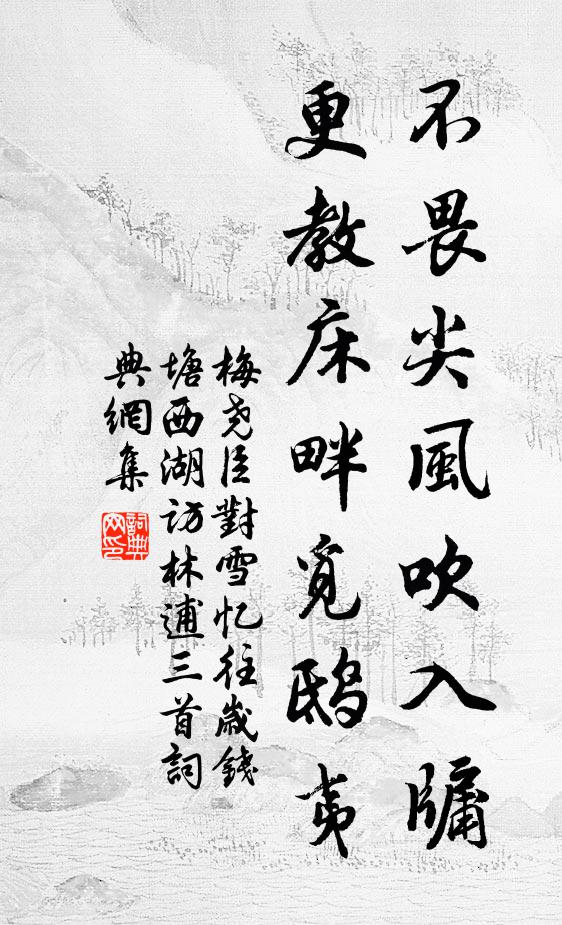 不畏尖風吹入牖
更教床畔覓鴟夷
梅堯臣對雪忆往歲錢
塘西湖访林逋三首詞
典網集
詞典网印